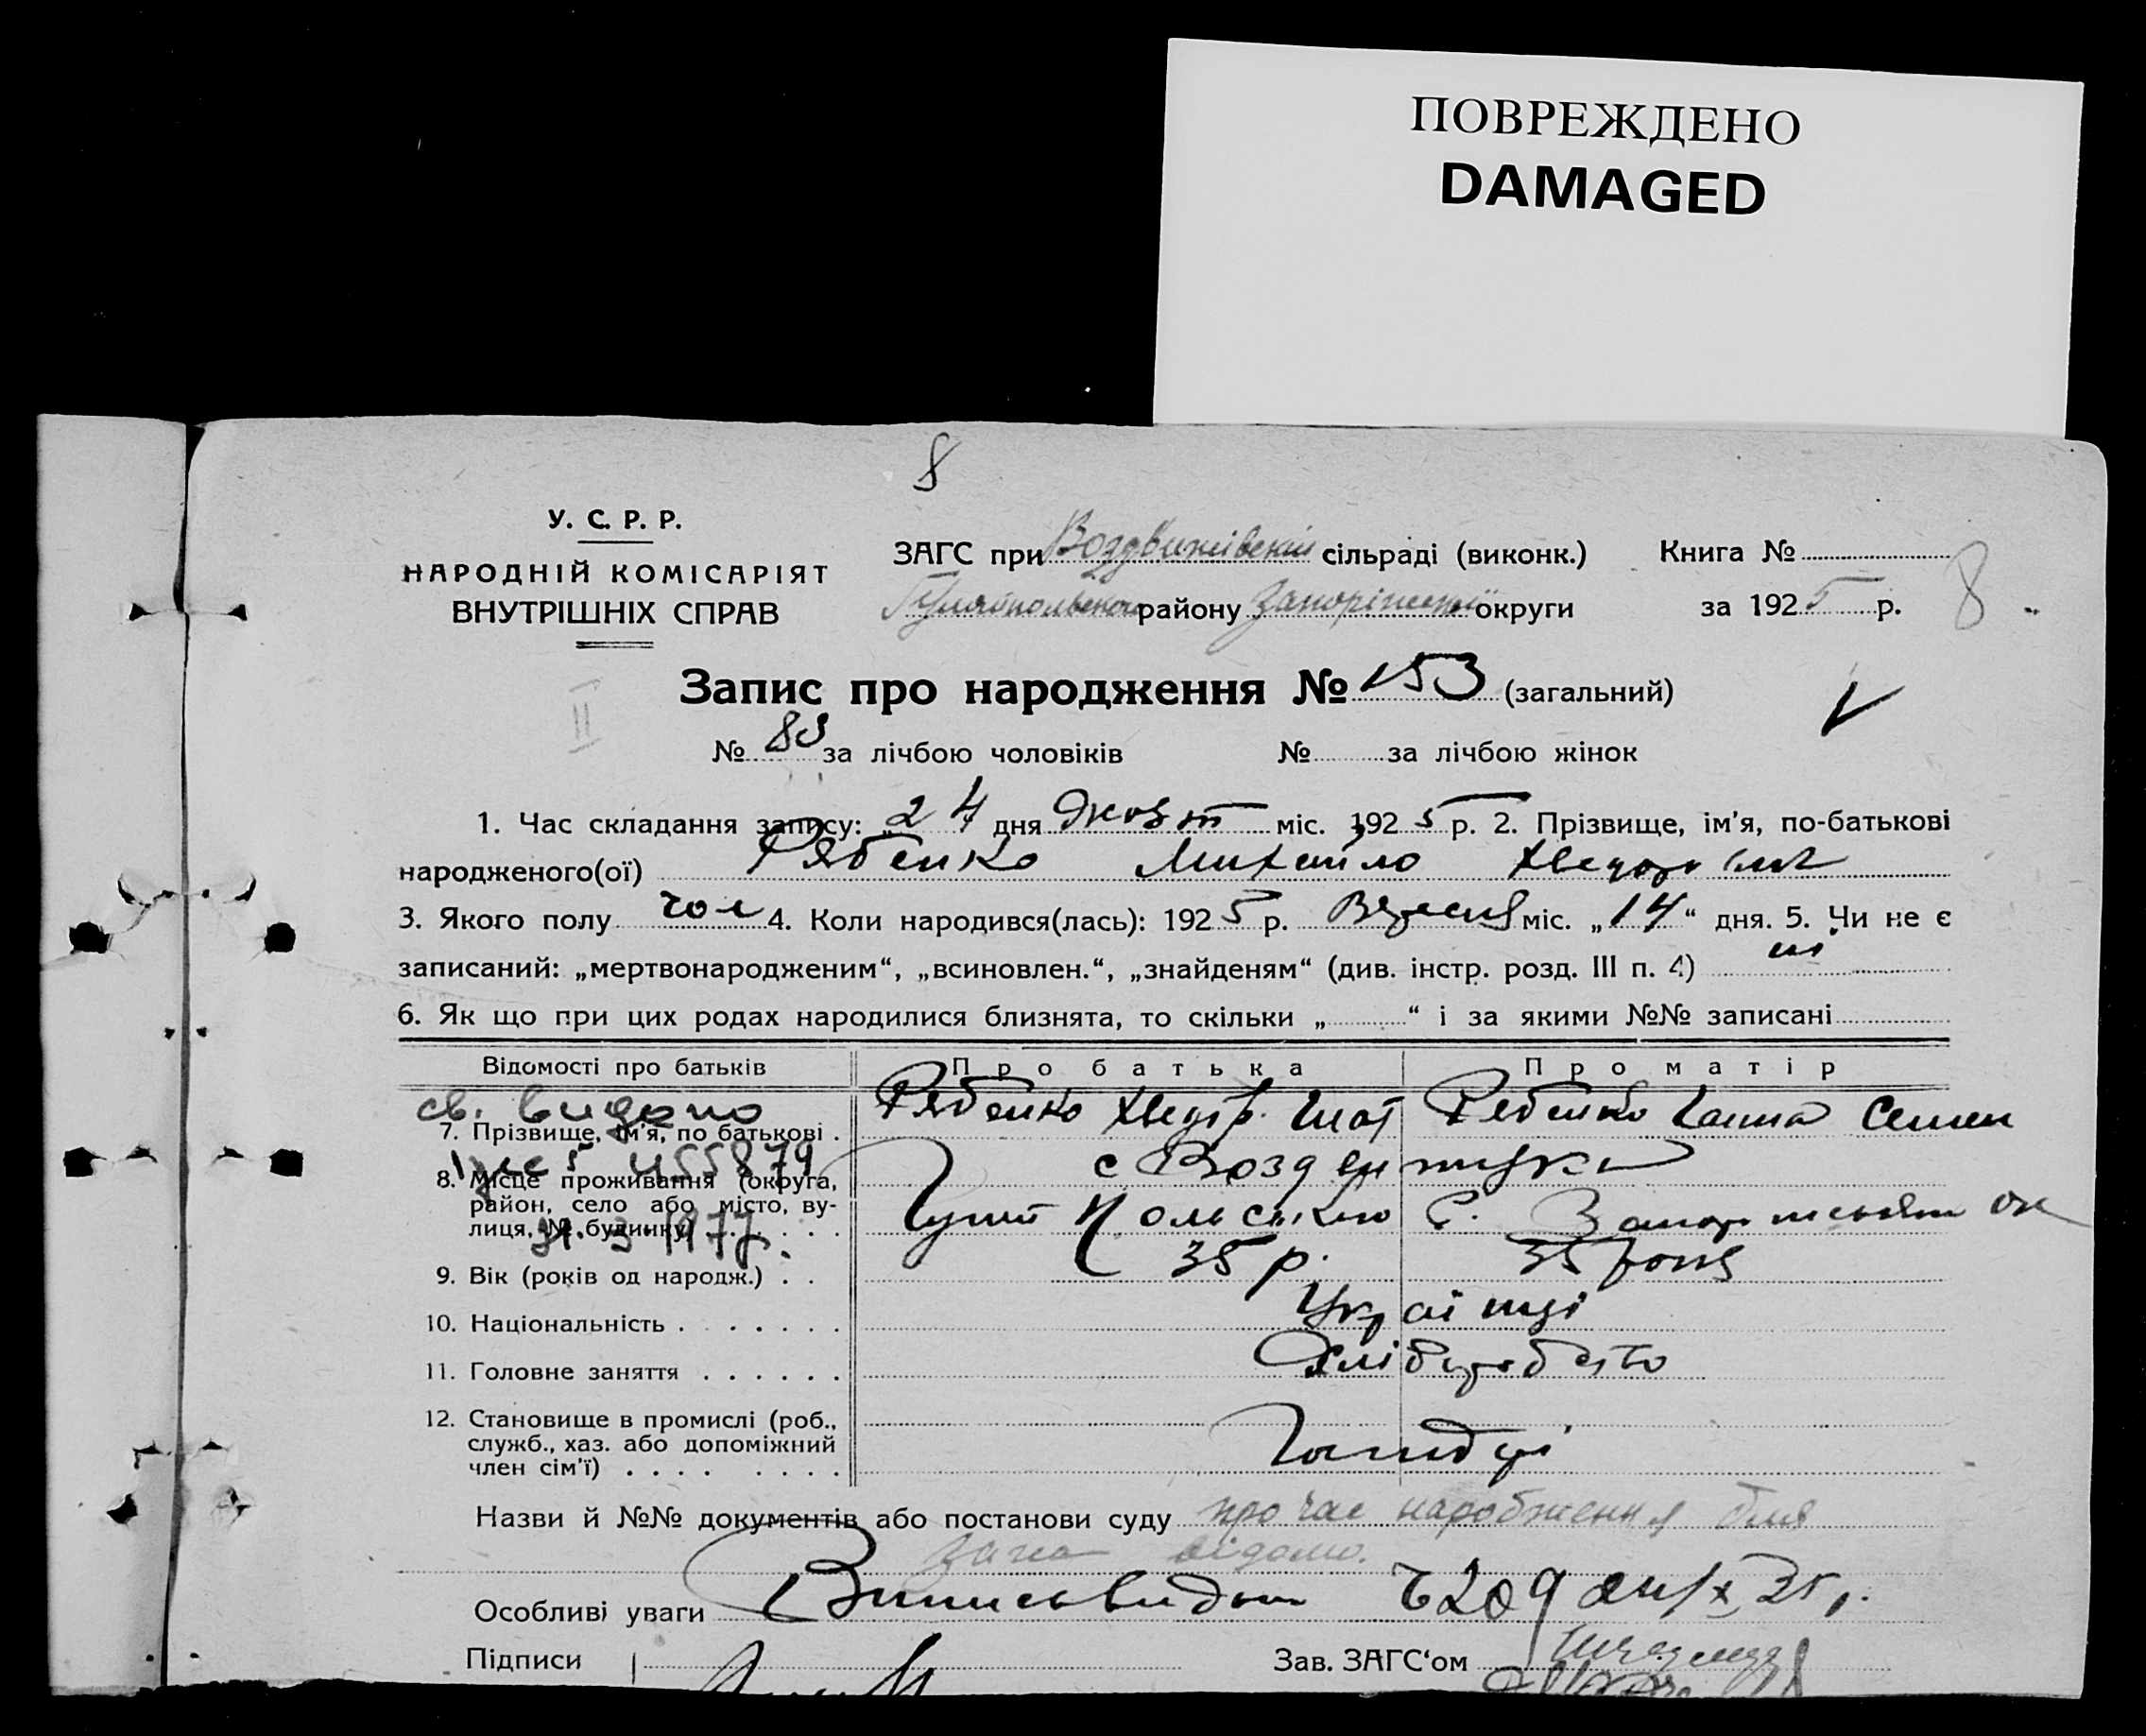 ПОВРЕЖДЕНО
DAMAGED
8
У. С. Р. Р.
НАРОДНІЙ КОМІСАРІЯТ
ВНУТРІШНІХ СПРАВ
ЗАГС при Воздвижівській сільраді (виконк.) Книга №
Гуляйпольського району Запоріжської округи за 1925 р. 8
II
Запис про народження № 153 (загальний) V
№ 83 за лічбою чоловіків № за лічбою жінок
1. Час складання запису: „24 дня Жовт міс. 1925 р. 2. Прізвище, ім'я, по-батькові
народженого(ої) Рябенко Михайло Хведорович
3. Якого полу чол 4. Коли народився(лась): 1925 р. Вересня міс. „14“ дня. 5. Чи не є
записаний: „мертвонародженим“, „всиновлен.“, „знайденям“ (див. інстр. розд. III п. 4) ні
6. Як що при цих родах народилися близнята, то скільки „ “ і за якими №№ записані
Відомості про батьків Про батька Про матір
св. видано
7. Прізвище, ім'я, по батькові . Рябенко Хведір. Рябенко Ганна Семен
455879
8. Місце проживання (округа, с Воздвижувки
район, село або місто, ву-
лиця, № будинку) Гуляй Польського Р. Запоріжської ок
31.3.1977.
9. Вік (років од народж.) . . 35 р. 35 років
10. Національність . Українці
11. Головне заняття . Хліборобство
12. Становище в промислі (роб.,
служб., хаз. або допоміжний
член сім'ї)
Назви й №№ документів або постанови суду про час народження
відомо.
Особливі уваги Випись видан 209 24/X 25 р.
Підписи Зав. ЗАГС‘ом